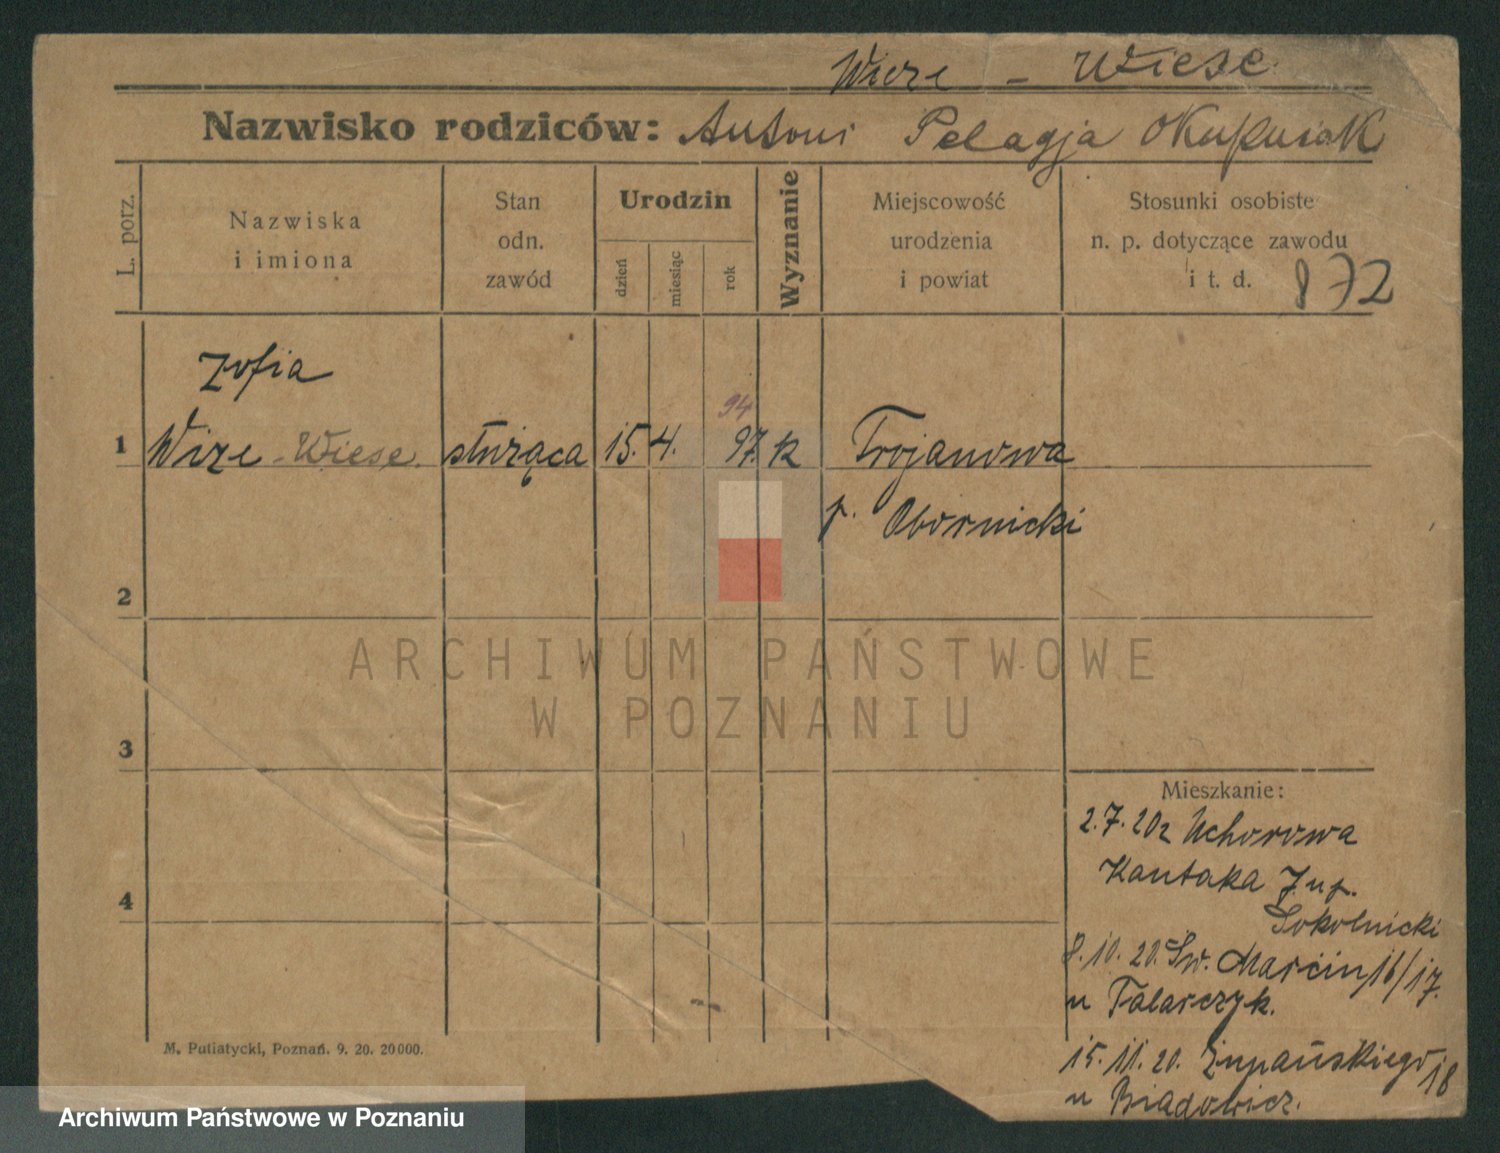 Wize - Wiese
Nazwisko rodziców: Antoni Pelagja
L. porz.
Nazwiska
i imiona
Stan
odn.
zawód
Urodzin
dzień
miesiąc
rok
Wyznanie
Miejscowość
urodzenia
i powiat
Stosunki osobiste
n. p. dotyczące zawodu
i t. d.
872
Zofia
94
1 Wize - Wiese. służąca 15. 4. 97. k Trojanowa
p. Obornicki
2
ARCHIWUM PAŃSTWOWE
W POZNANIU
3
Mieszkanie:
2.7.20 z Uchorowa
Kantaka 7 u p.
Sokolnicki
8.10.20. Św. Marcin 16/17.
u Talarczyk.
4
15.11.20. Żupańskiego 18
u Biadowicz.
M. Putiatycki, Poznań. 9. 20. 20000.
Archiwum Państwowe w Poznaniu